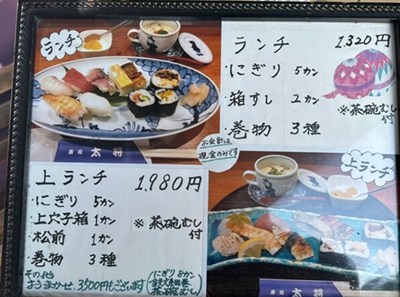 ランチ
ランチ 1,320円
・にぎり 5カン
・箱すし 2カン
・巻物 3種
※茶碗むし付
太将
お会計は
現金のみです
上ランチ 1,980円
・にぎり 5カン
・上穴子箱 1カン
・松前 1カン
・巻物 3種
※茶碗むし付
その他
おまかせ 3500円もございます
にぎり8カン
鉄火細巻
茶碗むし
上ランチ
太将